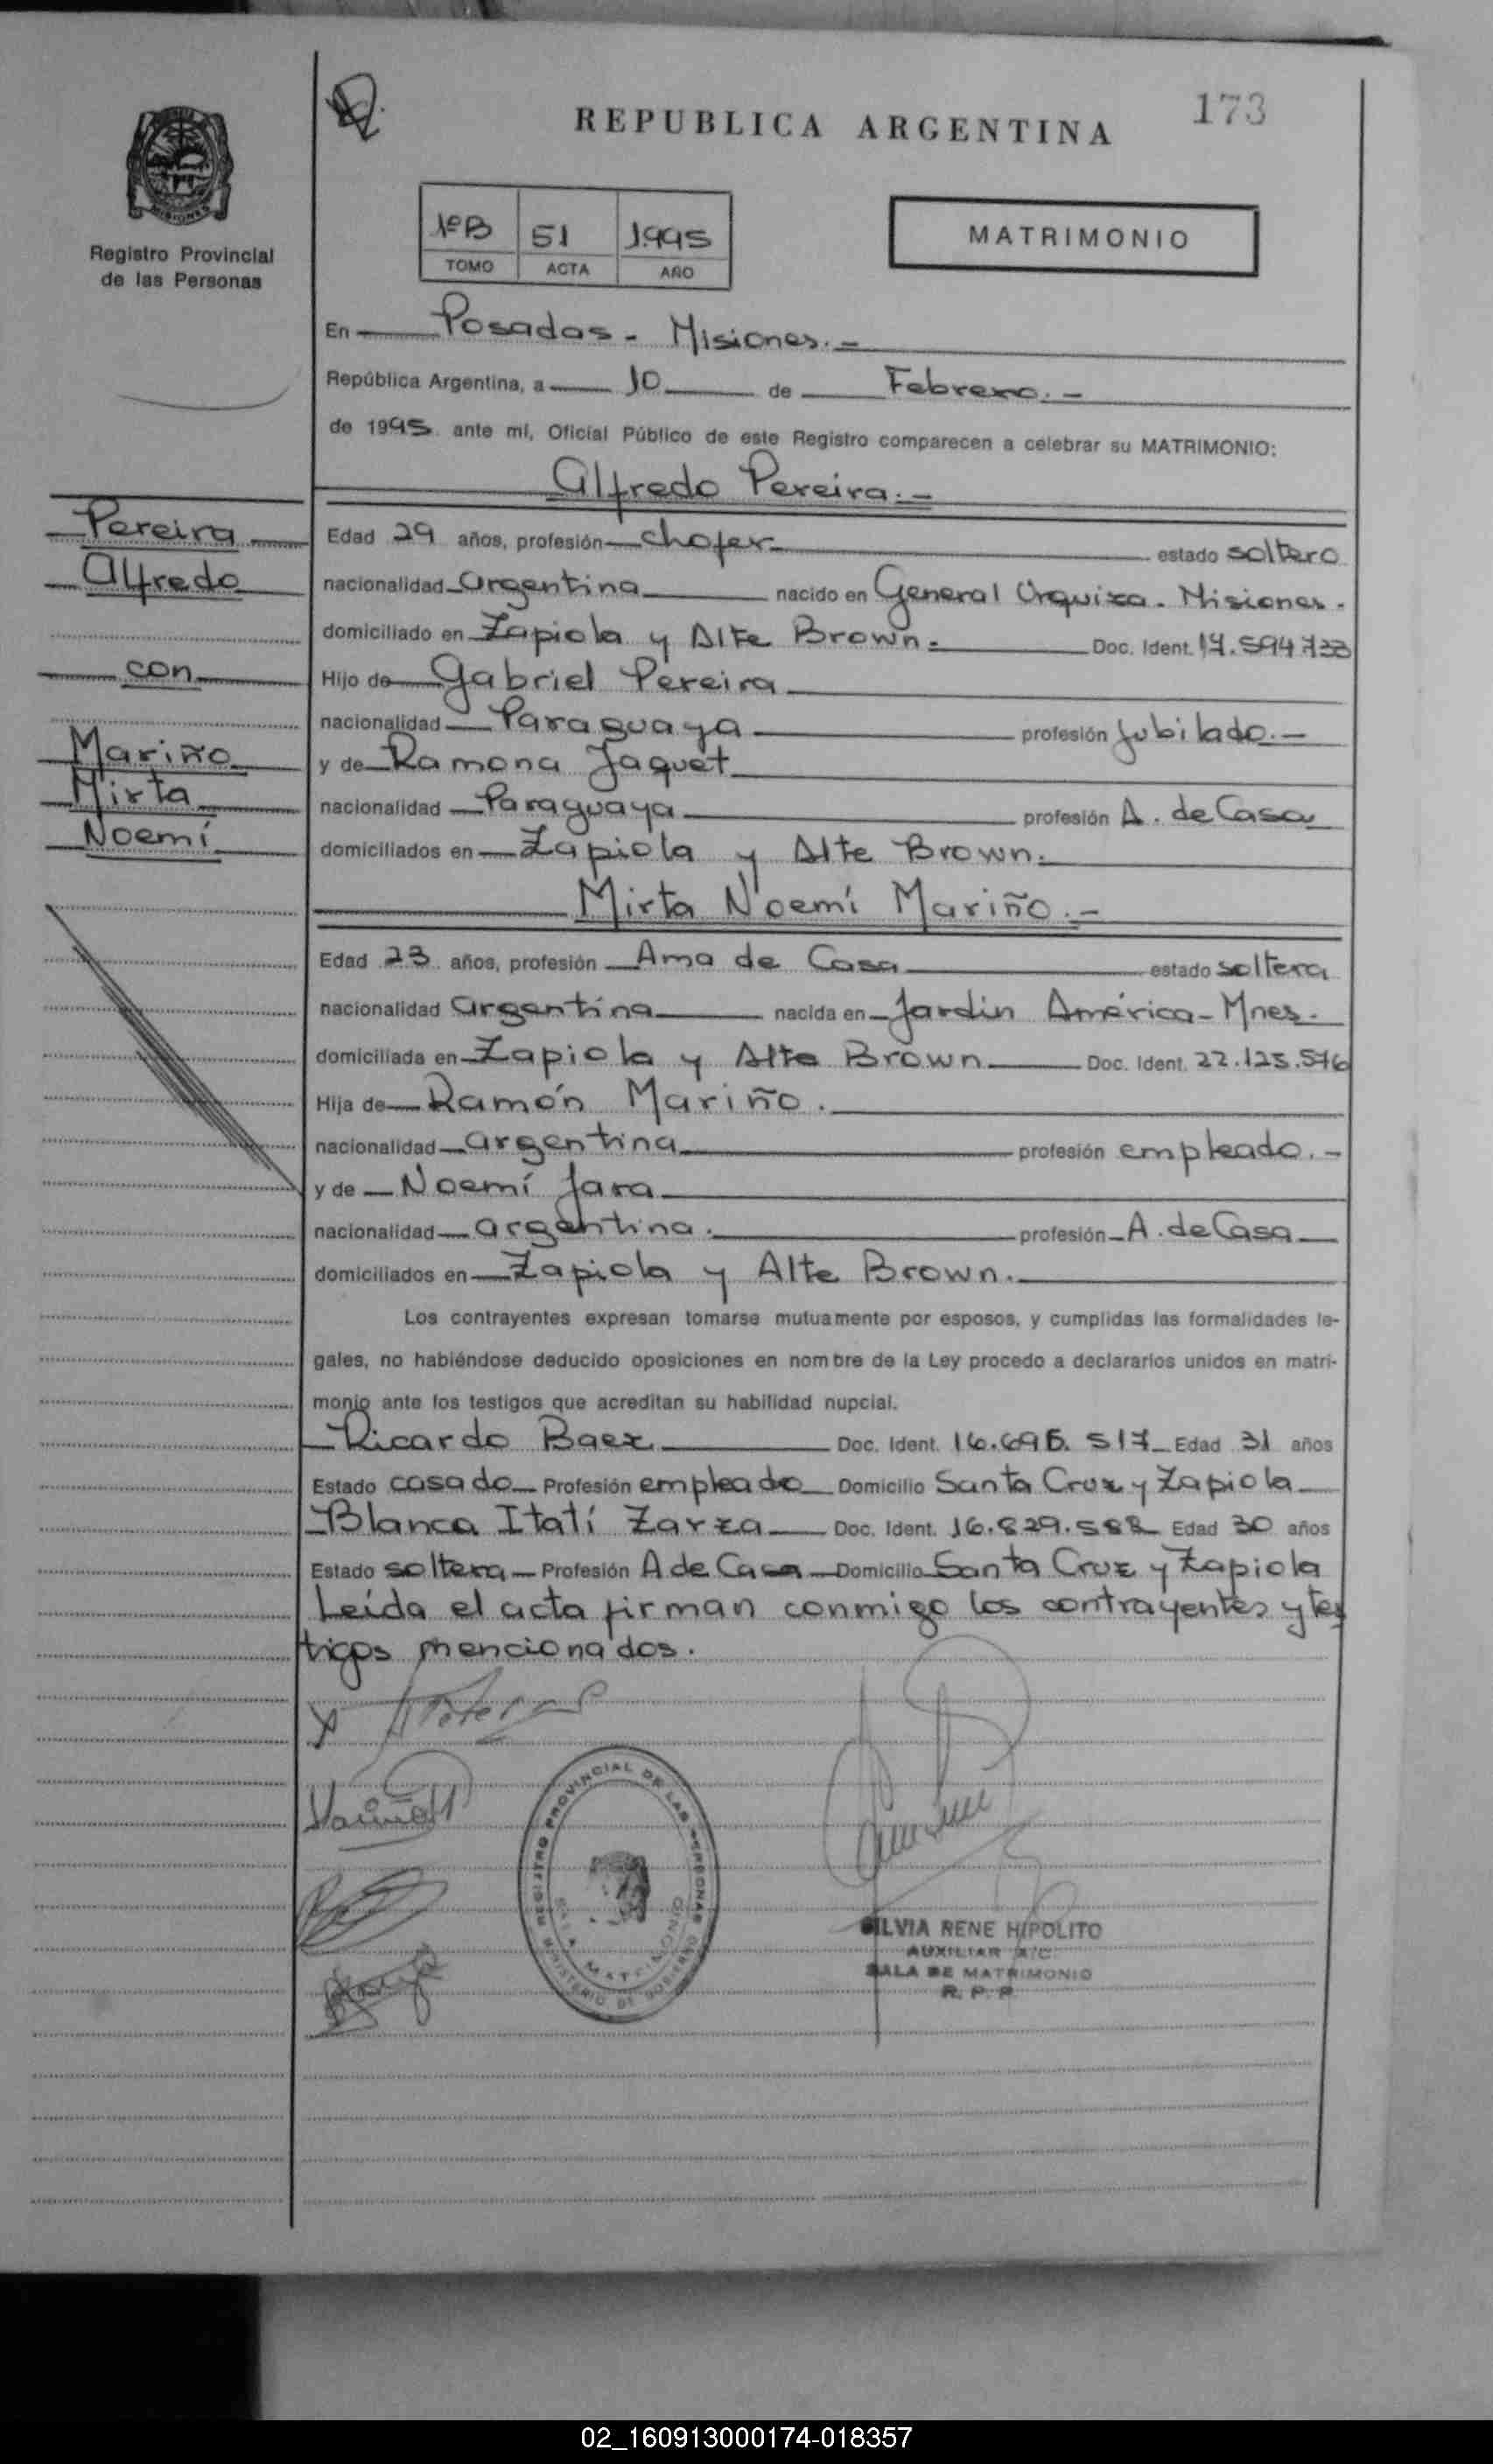 173
REPUBLICA ARGENTINA
Registro Provincial
de las Personas
1ºB 51 1995
TOMO ACTA AÑO
MATRIMONIO
En Posadas - Misiones.-
República Argentina, a 10 de Febrero.-
de 1995 ante mí, Oficial Público de este Registro comparecen a celebrar su MATRIMONIO:
Alfredo Pereira.-
Pereira
Alfredo
con
Mariño
Mirta
Noemí
Edad 29 años, profesión chofer estado soltero
nacionalidad argentina nacido en General Urquiza. Misiones.
domiciliado en Zapiola y Alte Brown. Doc. Ident. 17.594.733
Hijo de Gabriel Pereira
nacionalidad Paraguaya profesión Jubilado.-
y de Ramona Jaquet
nacionalidad Paraguaya profesión A. de Casa
domiciliados en Zapiola y Alte Brown.
Mirta Noemí Mariño.-
Edad 23 años, profesión Ama de Casa estado soltera
nacionalidad argentina nacida en Jardin América - Mnes.
domiciliada en Zapiola y Alte Brown Doc. Ident. 22.125.576
Hija de Ramón Mariño.
nacionalidad argentina profesión empleado.-
y de Noemí Jara
nacionalidad argentina. profesión A. de Casa
domiciliados en Zapiola y Alte Brown.
Los contrayentes expresan tomarse mutuamente por esposos, y cumplidas las formalidades le-
gales, no habiéndose deducido oposiciones en nombre de la Ley procedo a declararlos unidos en matri-
monio ante los testigos que acreditan su habilidad nupcial.
Ricardo Baez Doc. Ident. 16.695.517 Edad 31 años
Estado casado Profesión empleado Domicilio Santa Cruz y Zapiola
Blanca Itatí Zarza Doc. Ident. 16.829.588 Edad 30 años
Estado soltera Profesión A de Casa Domicilio Santa Cruz y Zapiola
Leída el acta firman conmigo los contrayentes y tes
tigos mencionados.
REGISTRO PROVINCIAL DE LAS PERSONAS
MINISTERIO DE GOBIERNO
MATRIMONIO
SILVIA RENE HIPOLITO
AUXILIAR A/C
SALA DE MATRIMONIO
R. P. P.
02_160913000174-018357